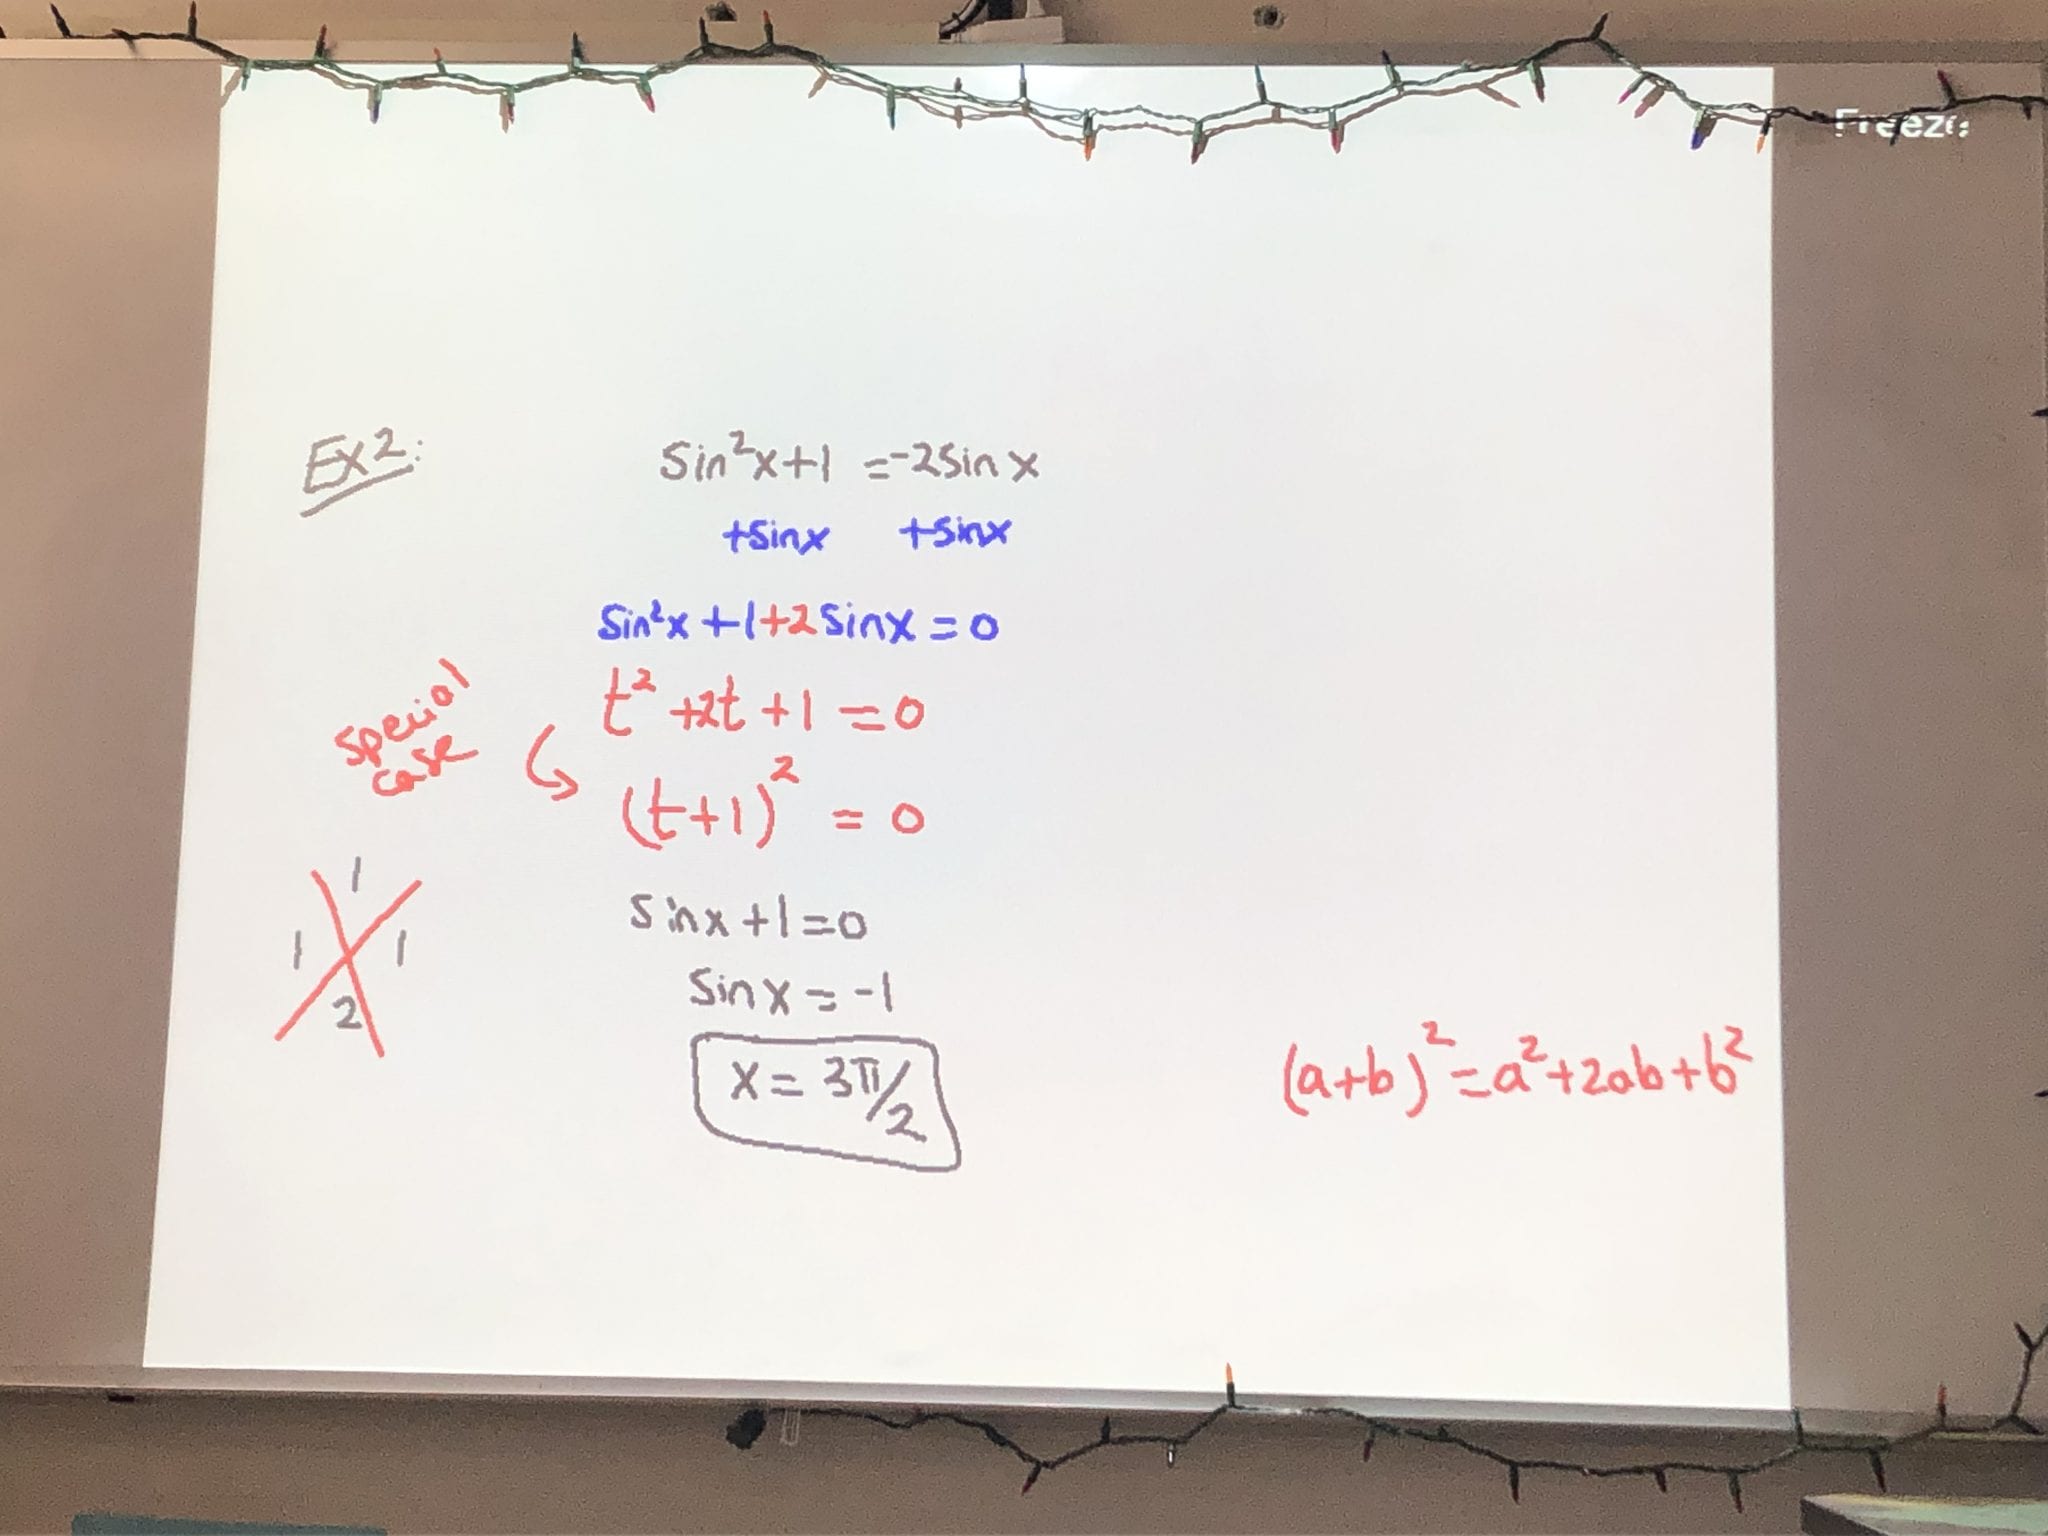 Freeze
Ex2:
sin²x+1 =-2sin x
+sinx +sinx
sin²x+1+2sinx=0
t²+2t+1=0
special
case
(t+1)²=0
1
1 1
2
sinx+1=0
sinx=-1
x=3π/2
(a+b)²=a²+2ab+b²